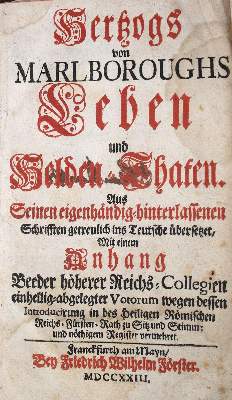 Hertzogs
von
MARLBOROUGHS
Leben
und
Helden-Thaten.
Aus
Seinen eigenhändig-hinterlassenen
Schrifften getreulich ins Teutsche übersetzet,
Mit einem
Anhang
Beeder höherer Reichs-Collegien
einhellig-abgelegter Votorum wegen dessen
Introducirung in des Heiligen Römischen
Reichs-Fürsten-Rath zu Sitz und Stimm:
und nöthigem Register vermehret.
Franckfurth am Mayn/
Bey Friedrich Wilhelm Förster.
MDCCXXIII.